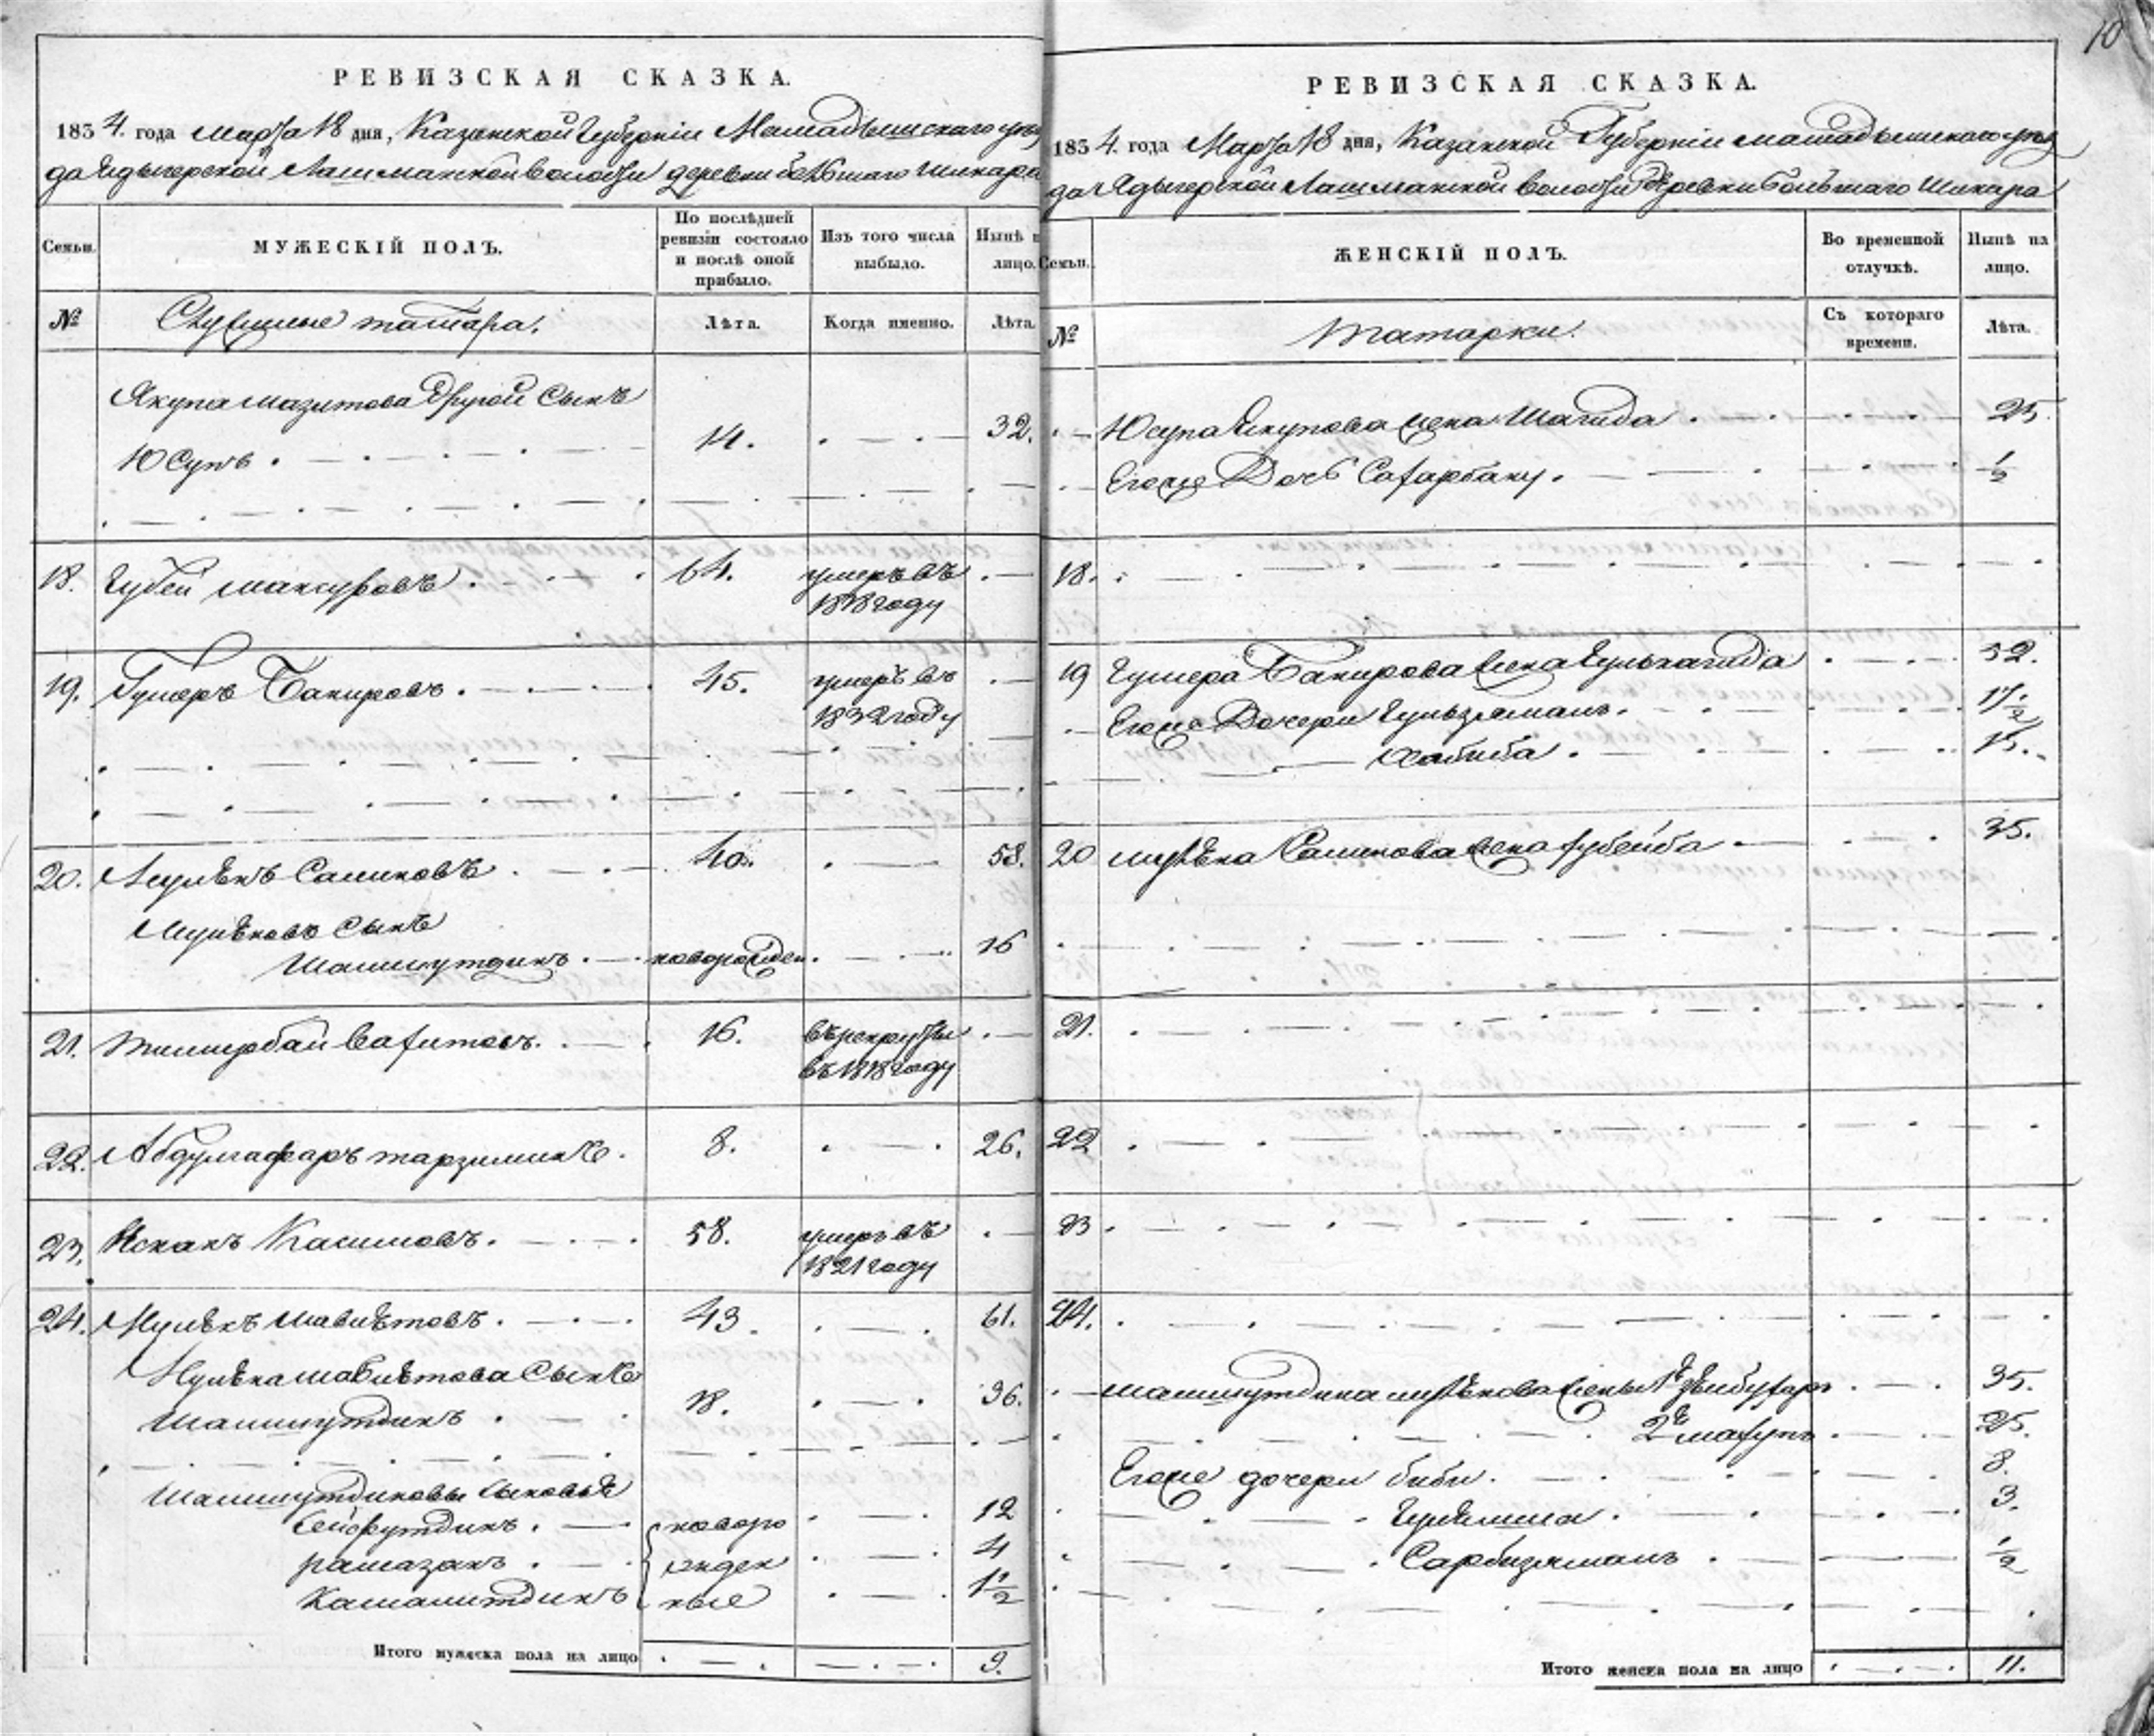 10
РЕВИЗСКАЯ СКАЗКА.
1834. года Марта 18 дня, Казанской Губерніи Мамадышскаго уѣз
да Ядыгерской Лашманской волости деревни большаго Шикара
Семьи.
МУЖЕСКІЙ ПОЛЪ.
По послѣдней ревизіи состояло и послѣ оной прибыло.
Изъ того числа выбыло.
Нынѣ н лицо.
№
Служилые татара.
Лѣта.
Когда именно.
Лѣта.
Якупа Мазитова другой сынъ
Юсупъ 14. 32.
18. Губей 64. умеръ въ
1818 году
19. Гумеръ Бакировъ. 45. умеръ въ
1832 году
20. Мулѣкъ Салиховъ 40. 58.
Мулѣковъ сынъ
Шамшутдинъ новорожден. 16
21. 16. въ рекруты
въ 1818 году
22. Абдулгафаръ 8. 26.
23. Исхакъ Касимовъ. 58. умеръ въ
1821 году
24. Мулѣкъ 43. 61.
Мулѣка сынъ
Шамшутдинъ 18. 36.
Шамшутдиновы сыновья
Сейфутдинъ новоро 12
рамазанъ жден 4
Камалитдинъ ные 1 1/2
Итого мужеска пола на лицо 9.
РЕВИЗСКАЯ СКАЗКА.
1834. года Марта 18 дня, Казанской Губерніи мамадышскаго уѣз
да Ядыгерской Лашманской волости деревни большаго Шикара
Семьи.
ЖЕНСКІЙ ПОЛЪ.
Во временной отлучкѣ.
Нынѣ на лицо.
№
Татарки.
Съ котораго времени.
Лѣта.
Юсупа Якупова жена Шагида 25.
Его же дочь 1/2
18.
19 Гумера Бакирова жена 52.
Его же дочери Гульзямаль 17 1/2
Хабиба 15.
20 мулѣка Салихова жена Зубейба 35.
21.
22
23
24.
шамшутдина мулѣкова жены 1я 35.
2я 25.
Его же дочери биби. 8.
3.
Сарбизямалъ 1/2
Итого женска пола на лицо 11.